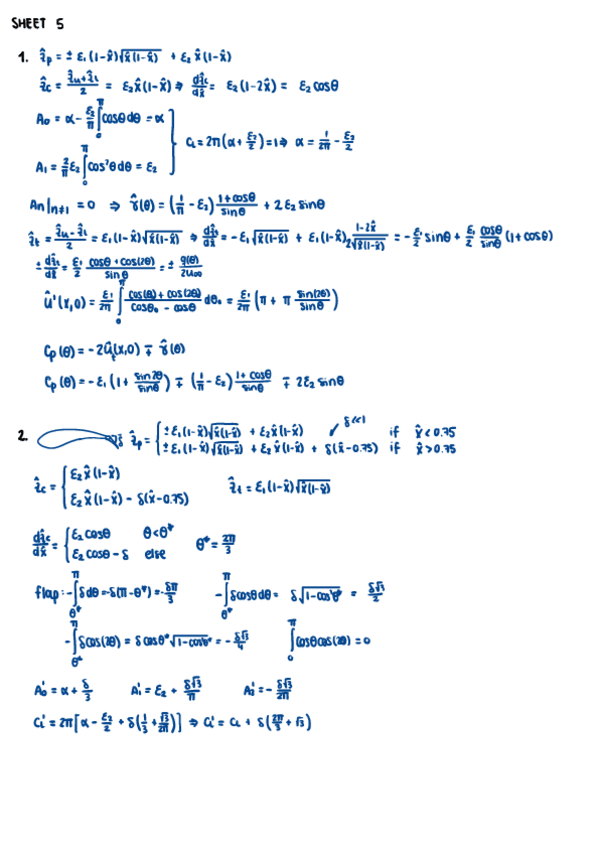 SHEET 5
1. ẑp = ± ε₁(1-x̂)√(x̂(1-x̂)) + ε₂x̂(1-x̂)
ẑc = (ẑu+ẑl)/2 = ε₂x̂(1-x̂) ⇒ dẑc/dx̂ = ε₂(1-2x̂) = ε₂cosθ
A₀ = α - ε₂/π ∫₀^π cosθdθ = α
CL = 2π(α + ε₂/2) = 1 ⇒ α = 1/2π - ε₂/2
A₁ = 2/π ε₂ ∫₀^π cos²θdθ = ε₂
An|n≠1 = 0 ⇒ γ̂(θ) = (1/π - ε₂) (1+cosθ)/sinθ + 2ε₂sinθ
ẑt = (ẑu-ẑl)/2 = ε₁(1-x̂)√(x̂(1-x̂)) ⇒ dẑt/dx̂ = -ε₁√(x̂(1-x̂)) + ε₁(1-x̂) (1-2x̂)/(2√(x̂(1-x̂))) = -ε₁/2 sinθ + ε₁/2 cosθ/sinθ (1+cosθ)
± dẑt/dx̂ = ε₁/2 (cosθ+cos(2θ))/sinθ = ± q(θ)/2U∞
û'(x,0) = ε₁/2π ∫₀^π (cos(θ)+cos(2θ))/(cosθ₀ - cosθ) dθ₀ = ε₁/2π (π + π sin(2θ)/sinθ)
Cp(θ) = -2û(x,0) ∓ γ̂(θ)
Cp(θ) = -ε₁(1 + sin2θ/sinθ) ∓ (1/π - ε₂) (1+cosθ)/sinθ ∓ 2ε₂sinθ
2. δ ẑp = { ±ε₁(1-x̂)√(x̂(1-x̂)) + ε₂x̂(1-x̂) δ≪1 if x̂<0.75
±ε₁(1-x̂)√(x̂(1-x̂)) + ε₂x̂(1-x̂) + δ(x̂-0.75) if x̂>0.75
ẑc = { ε₂x̂(1-x̂)
ε₂x̂(1-x̂) - δ(x̂-0.75)
ẑt = ε₁(1-x̂)√(x̂(1-x̂))
dẑc/dx̂ = { ε₂cosθ θ<θ*
ε₂cosθ - δ else
θ* = 2π/3
flap: -∫_θ*^π δdθ = -δ(π-θ*) = -δπ/3 -∫_θ*^π δcosθdθ = δ√(1-cos²θ*) = δ√3/2
-∫_θ*^π δcos(2θ) = δcosθ*√(1-cos²θ*) = -δ√3/4 ∫₀^π cosθcos(2θ) = 0
A₀' = α + δ/3 A₁' = ε₂ + δ√3/π A₂' = -δ√3/2π
CL' = 2π[α - ε₂/2 + δ(1/3 + √3/2π)] ⇒ CL' = CL + δ(2π/3 + √3)